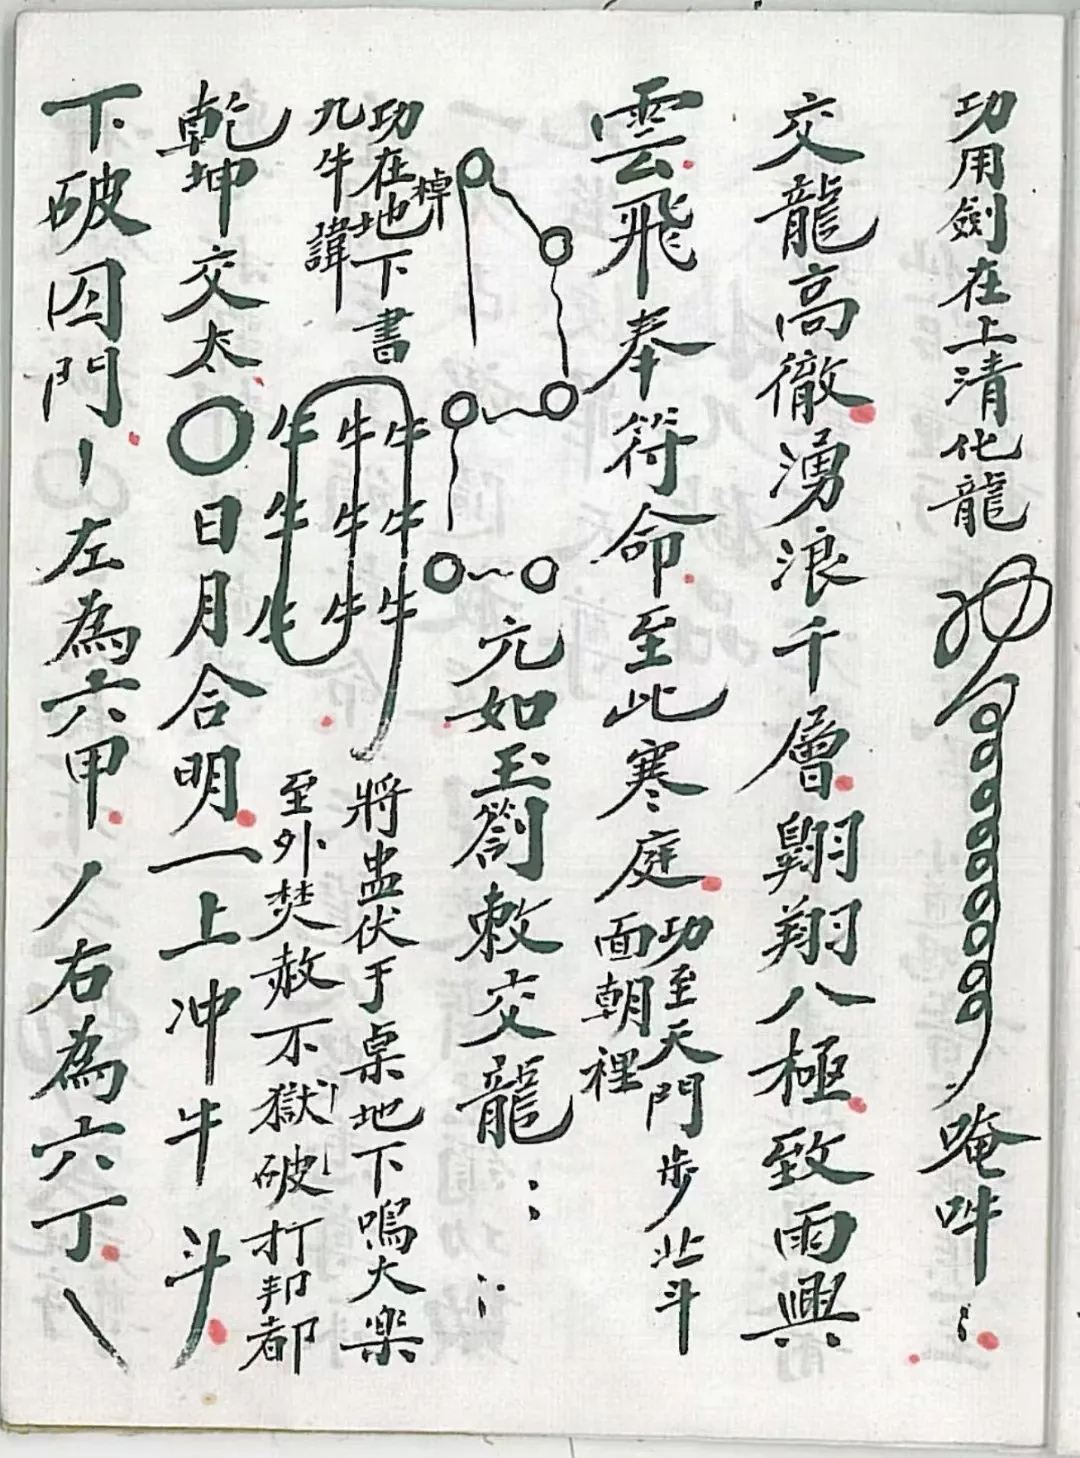 功用劍在上清化龍
唵吽
交龍高徹湧浪千層翱翔八極致雨興
雲飛奉符命至此寒庭
功至天門步北斗
面朝裡
元如玉劄敕交龍
功在地下書
棹
九牛諱
牛牛牛
牛牛牛
牛牛牛
將盅伏于桌地下鳴大樂
至外焚赦不獄破打邦都
乾坤交太〇日月合明一上冲牛斗
下破囚門丨左為六甲丿右為六丁乀